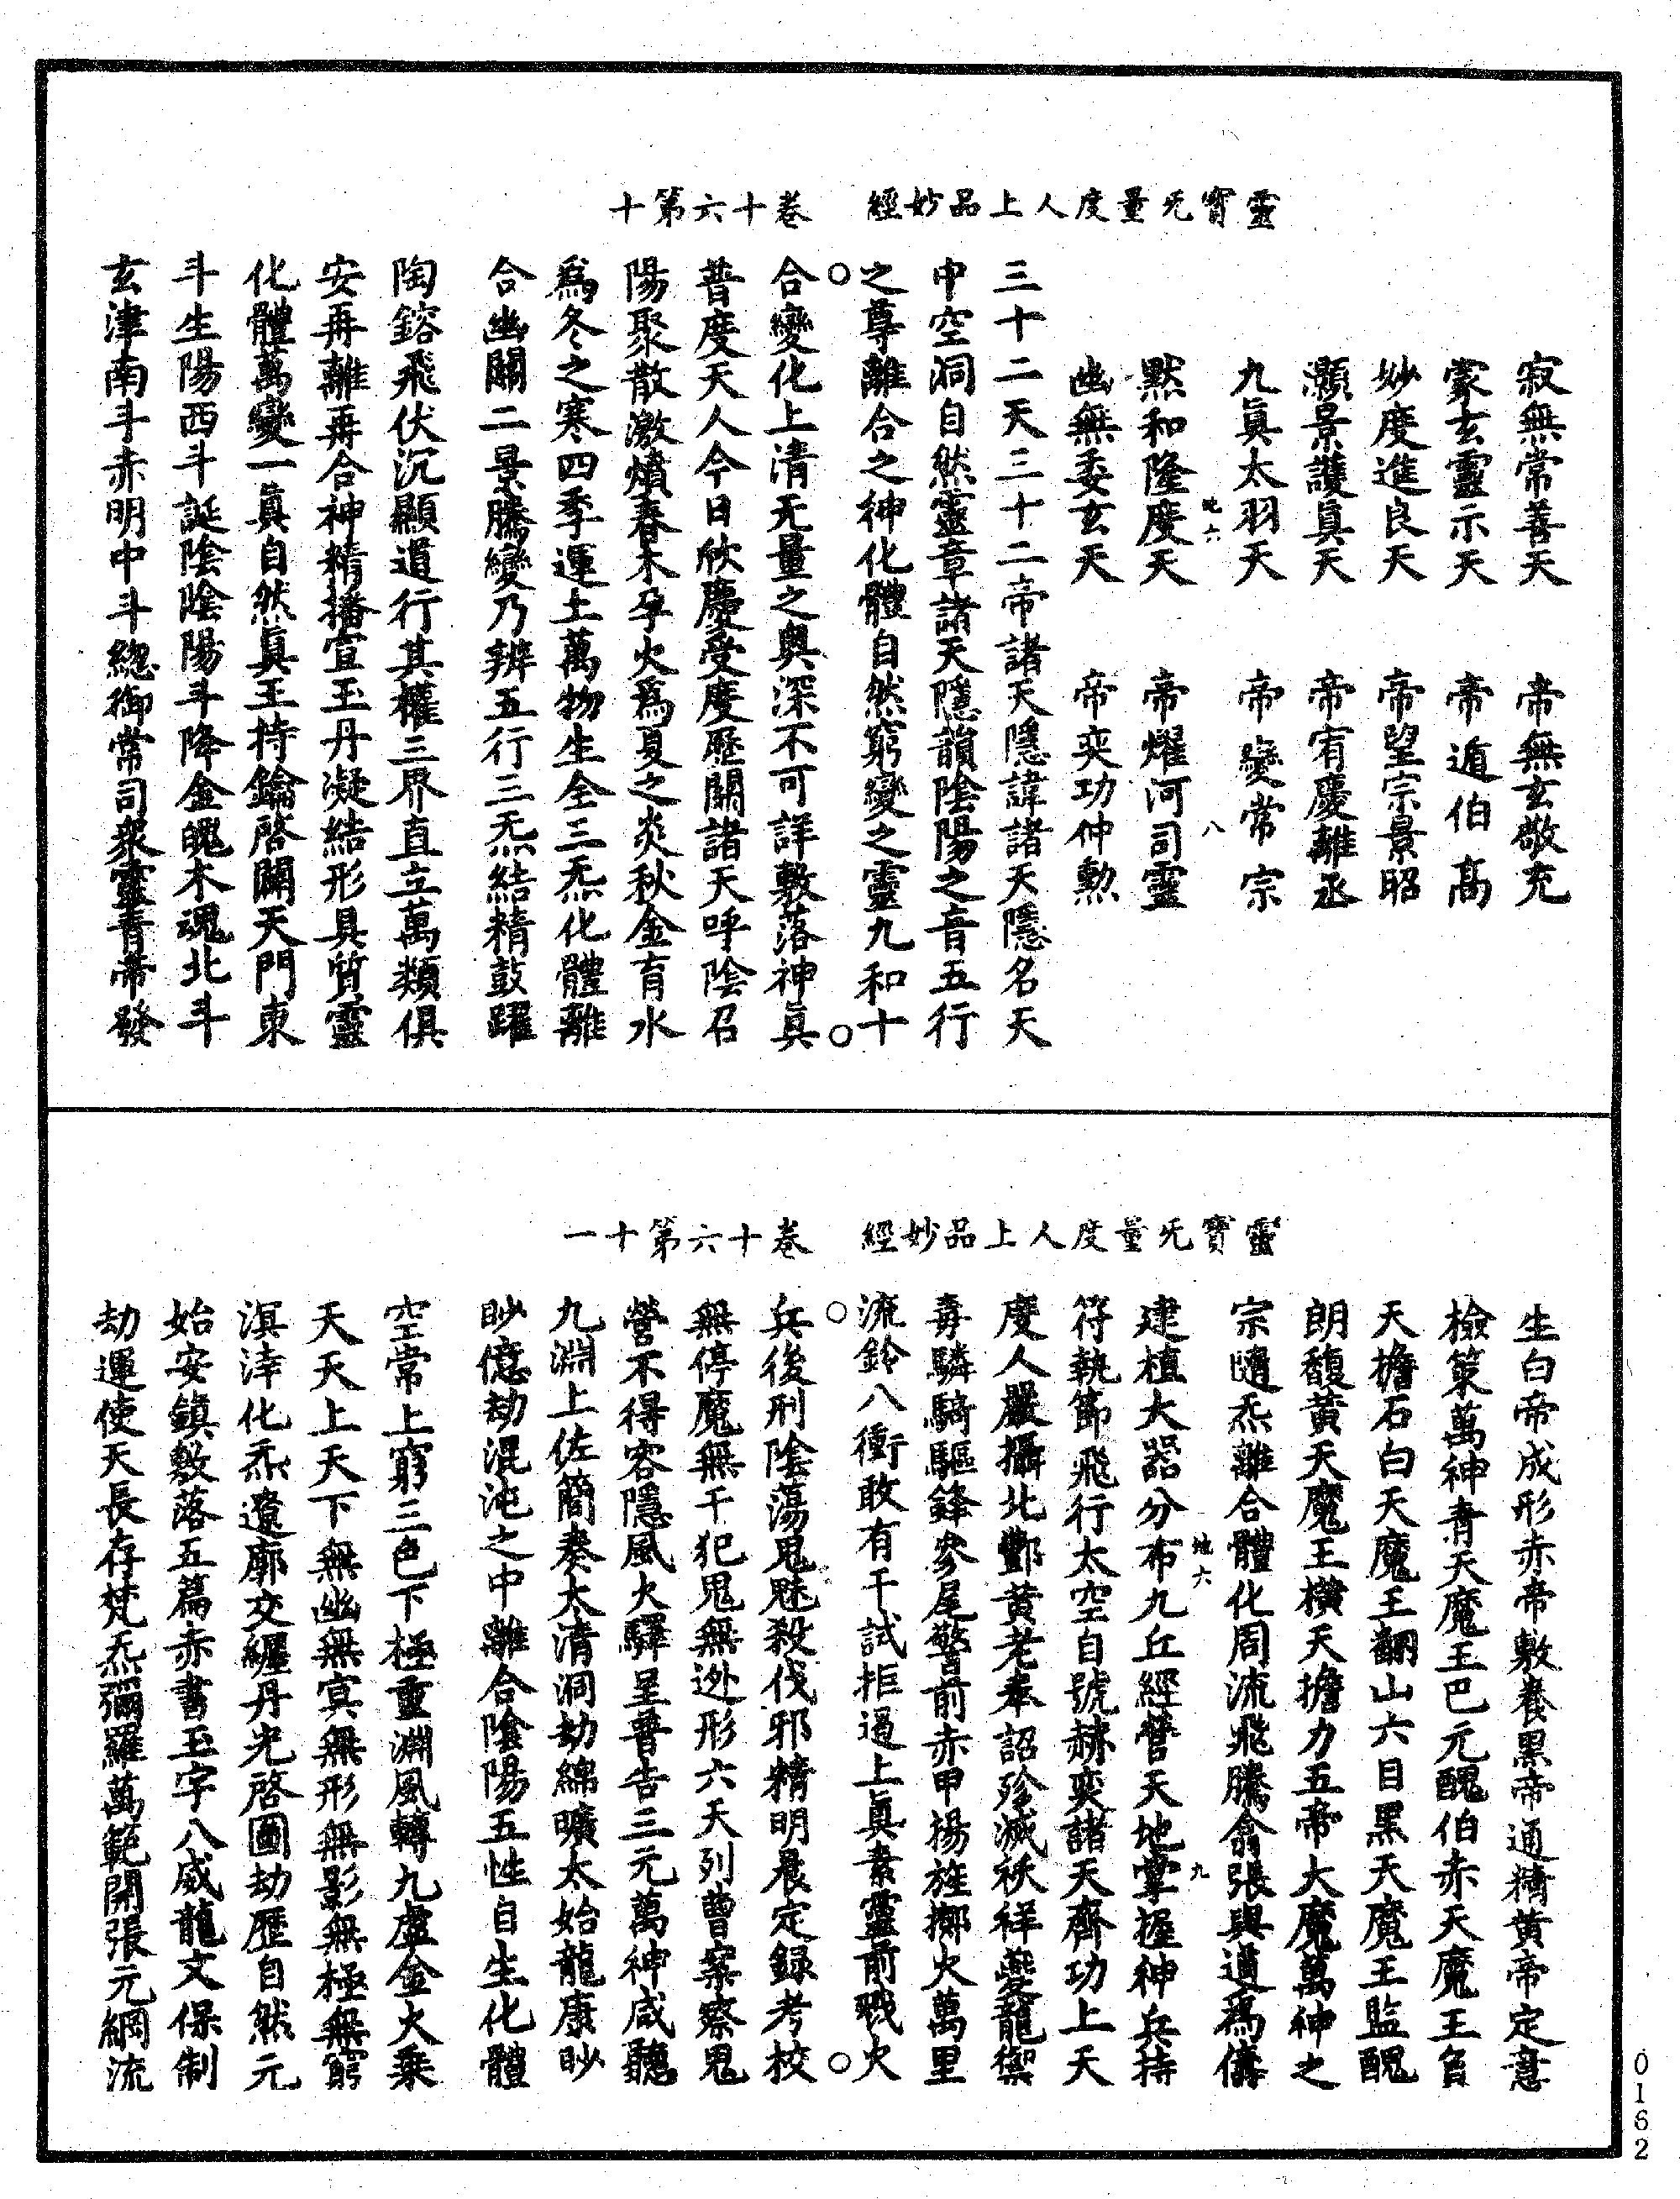 靈寶无量度人上品妙經　卷十六第十
寂無常善天　帝無玄敬充
蒙玄靈示天　帝遁伯髙
妙度進良天　帝望宗景昭
灝景護眞天　帝宥慶離丞
九眞太羽天　帝變常宗
地六　八
黙和隆度天　帝燿河司靈
幽無委玄天　帝奕功仲勲
三十二天三十二帝諸天隱諱諸天隱名天
中空洞自然靈章諸天隱韻陰陽之音五行
之尊離合之神化體自然窮變之靈九和十
合變化上清无量之奥深不可詳敷落神眞
普度天人今日欣慶受度歷關諸天呼陰召
陽聚散激爋春木孕火爲夏之炎秋金育水
爲冬之寒四季運土萬物生全三炁化體離
合幽關二景騰變乃辨五行三炁結精鼓躍
陶鎔飛伏沉顯道行其權三界直立萬類俱
安再離再合神精播宣玉丹凝結形具質靈
化體萬變一眞自然眞王持鑰啓闢天門東
斗生陽西斗誕陰陰陽斗降金魄木魂北斗
玄津南斗赤明中斗緫御常司衆靈青帝發
靈寶无量度人上品妙經　卷十六第十一
生白帝成形赤帝敷養黒帝通精黄帝定意
檢策萬神青天魔王巴元醜伯赤天魔王負
天擔石白天魔王翻山六目黒天魔王監醜
朗馥黄天魔王横天擔力五帝大魔萬神之
宗隨炁離合體化周流飛騰翕張與道爲儔
地六　九
建植大器分布九丘經營天地掌握神兵持
符執節飛行太空自號赫奕諸天齊功上天
度人嚴攝北酆黄老奉詔殄滅祅祥夔龍禦
毒驎騎驅鋒參尾警前赤甲揚旌擲火萬里
流鈴八衝敢有干試拒遏上眞素靈前戮火
兵後刑陰蕩鬼魅殺伐邪精明晨定録考校
無停魔無干犯鬼無迯形六天列曹案察鬼
營不得容隱風火驛呈普告三元萬神咸聽
九淵上佐簡奏太清洞劫綿曠太始龍康眇
眇億劫混沌之中離合陰陽五性自生化體
空常上窮三色下極重淵風轉九虛金火乗
天天上天下無幽無㝠無形無影無極無窮
溟涬化炁遼廓交纒丹光啓圖劫歷自然元
始安鎮敷落五篇赤書玉字八威龍文保制
劫運使天長存梵炁彌羅萬範開張元綱流
0162